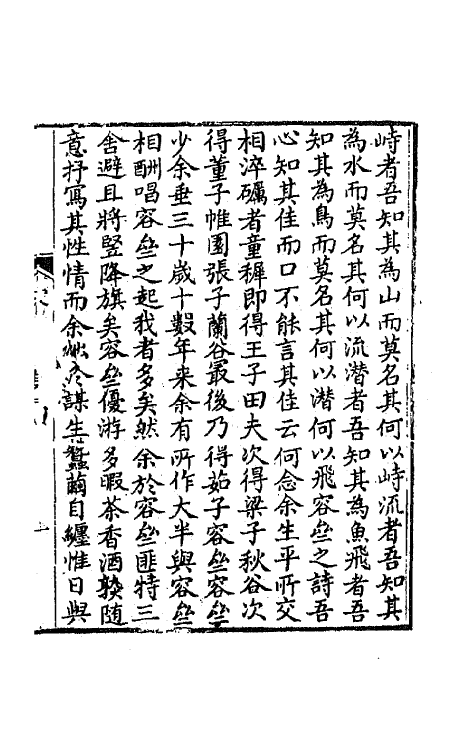 峙者吾知其為山而莫名其何以峙流者吾知其
為水而莫名其何以流潛者吾知其為魚飛者吾
知其為鳥而莫名其何以潛何以飛容垒之詩吾
心知其佳而口不能言其佳云何念余生平所交
相淬礪者童穉即得王子田夫次得梁子秋谷次
得董子帷園張子蘭谷最後乃得茹子容垒容垒
少余垂三十歲十數年来余有所作大半與容垒
相酬唱容垒之起我者多矣然余於容垒匪特三
舍避且將豎降旗矣容垒優游多暇茶香酒熟随
意抒寫其性情而余 謀生蠶繭自纏惟日與